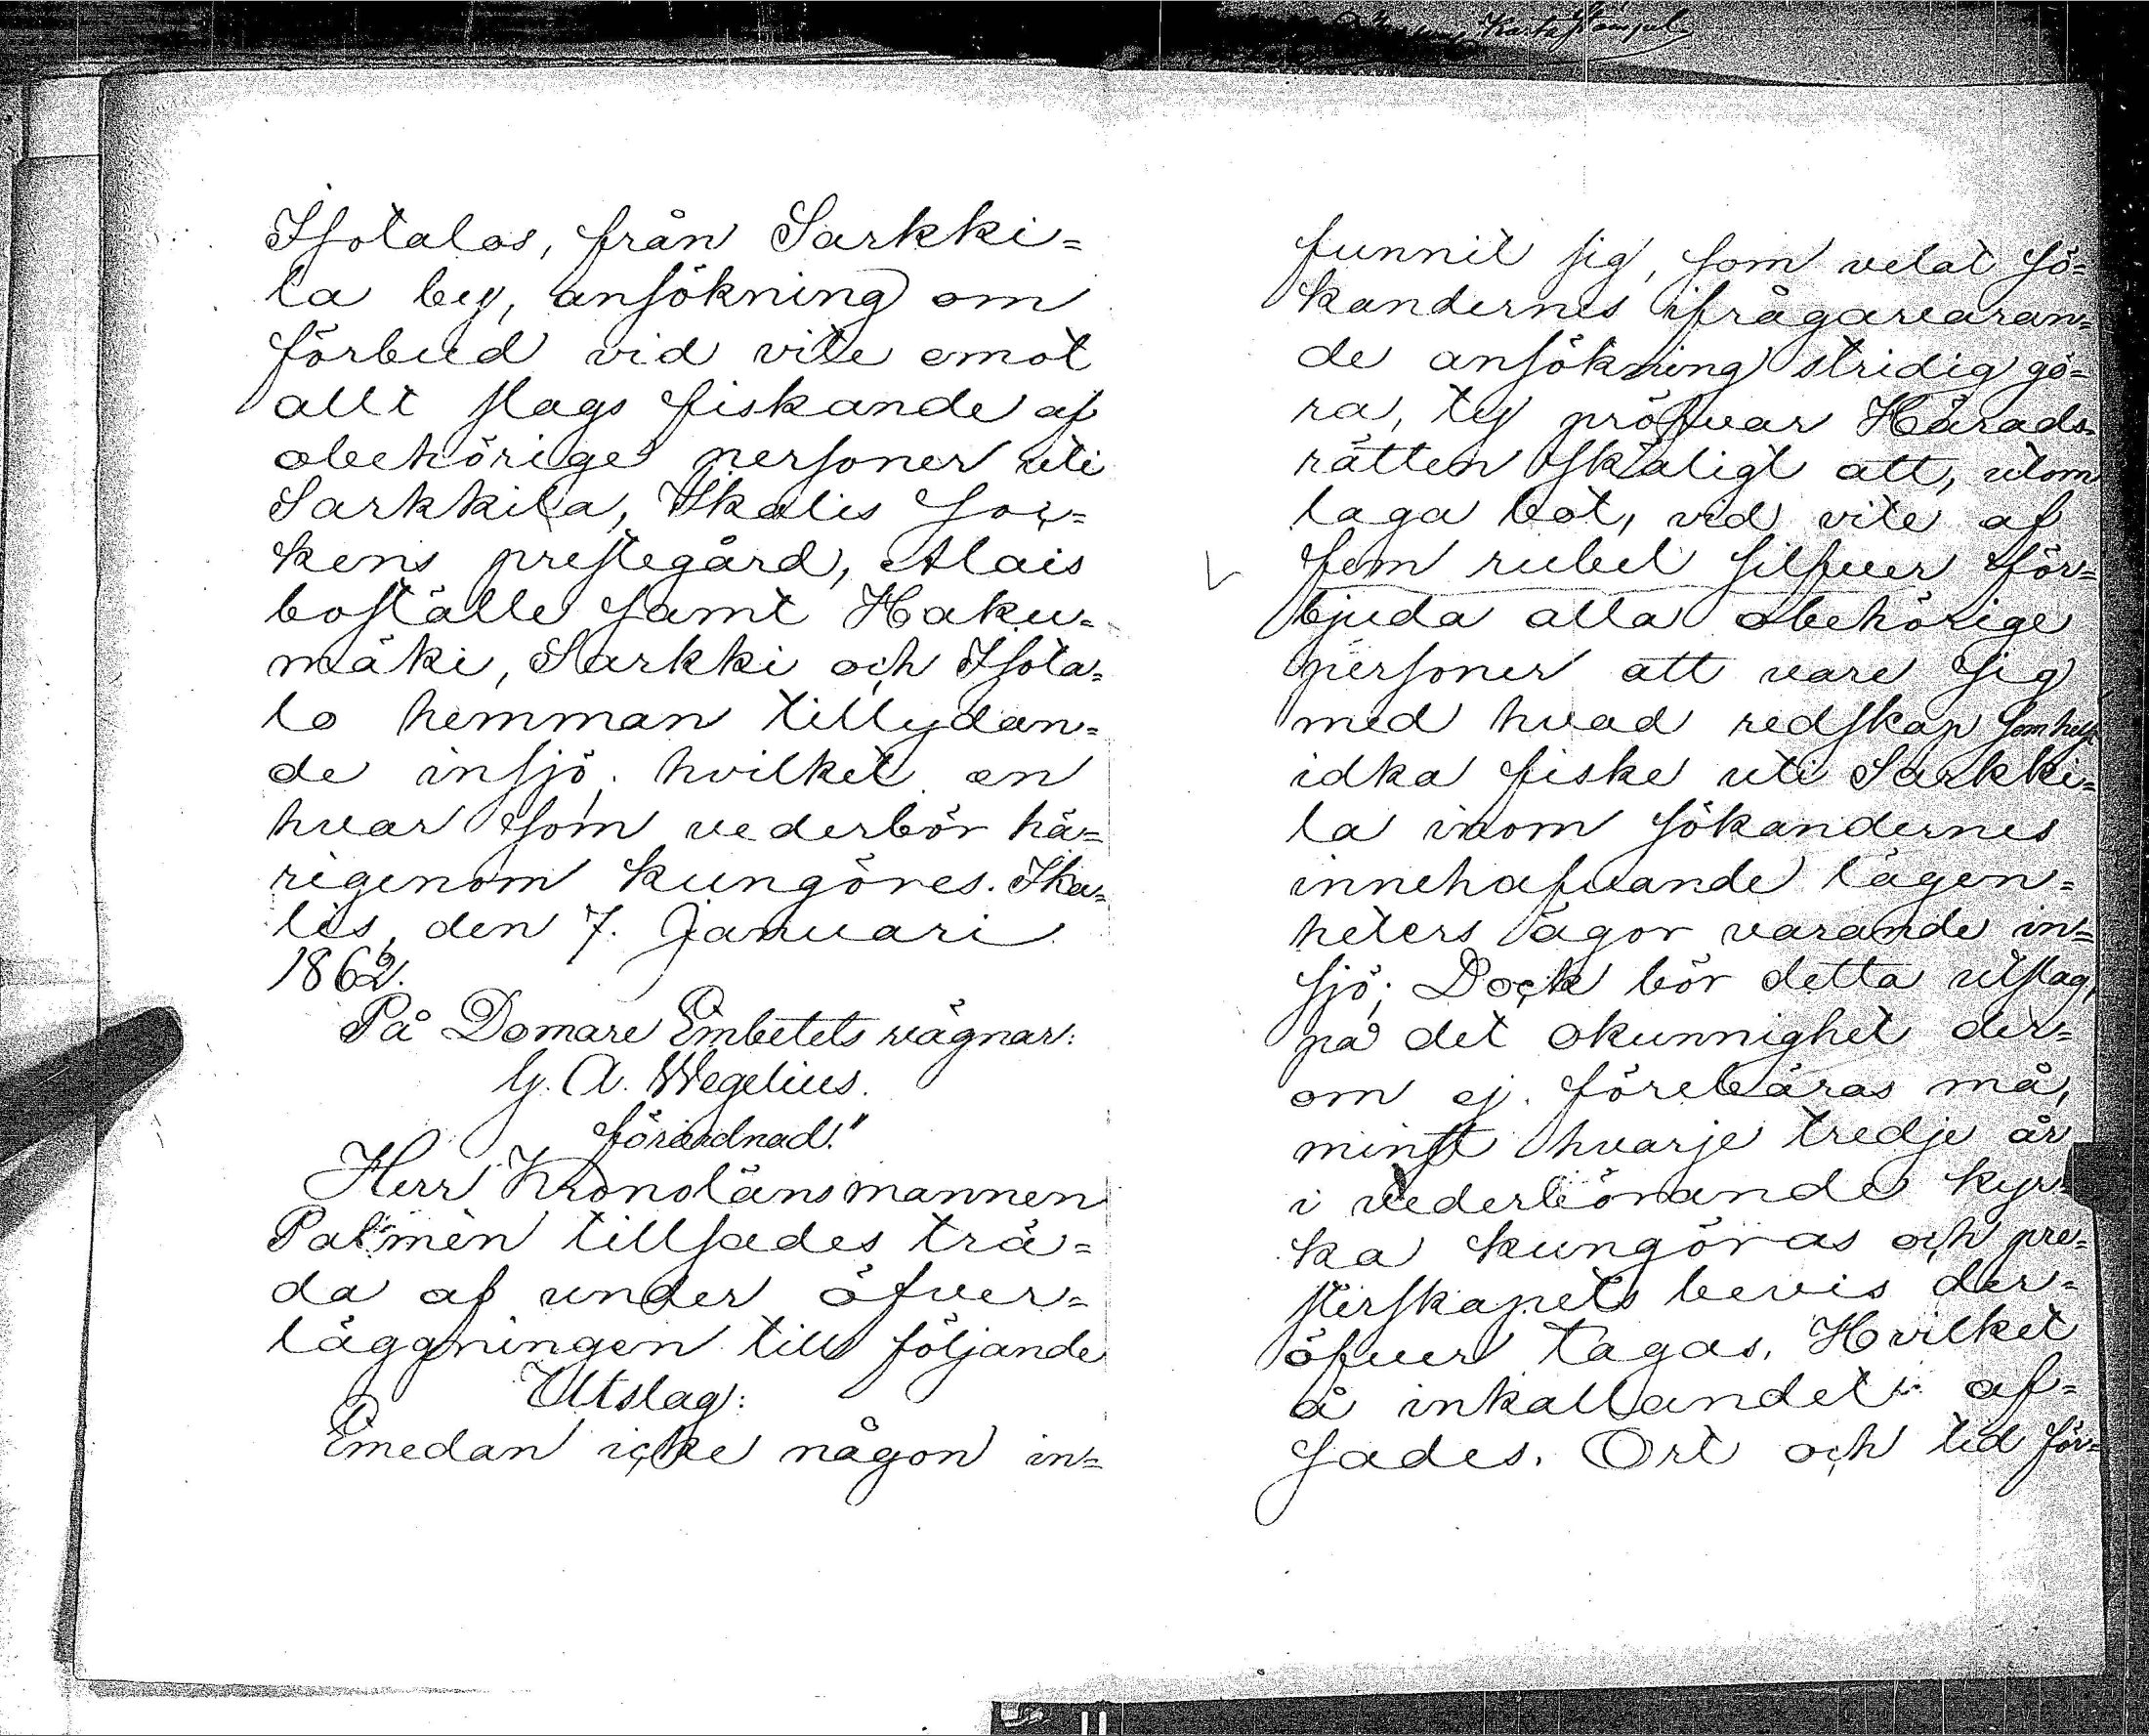 Isotalos, från Sarkki=
la by, ansökning om
förbud vid vite emot
allt slags fiskande af
obehörige personer uti
Sarkkila, Ikalis soc=
kens prestegård, Alais
boställe samt Haku=
mäki, Sarkki och Isota=
lo hemman tillydan=
de insjö, hvilket en
hvar som vederbör hä=
rigenom kungöres. Ika=
lis, den 7. Januari
1862.
På Domare Embetets vägnar:
G. A. Wegelius.
förordnad."
Herr Kronolänsmannen
Palmèn tillsades trä=
da af under öfver=
läggningen till följande
Utslag:
Emedan icke någon in=
funnit sig, som velat sö=
kandernes ifrågavaran=
de ansökning stridig gö=
ra, ty pröfvar Härads
rätten skäligt att, utom
laga bot, vid vite af
fem rubel silfver för=
bjuda alla obehörige
personer att vare sig
med hvad redskap som helst
idka fiske uti Sarkki=
la inom sökandernes
innehafvande lägen=
heters ägor varande in=
sjö; Dock bör detta utslag,
på det okunnighet der=
om ej förebäras må,
minst hvarje tredje år
i vederbörande kyr=
ka kungöras och pre=
sterskapets bevis der=
öfver tagas. Hvilket
å inkallandet af=
sades. Ort och tid för=